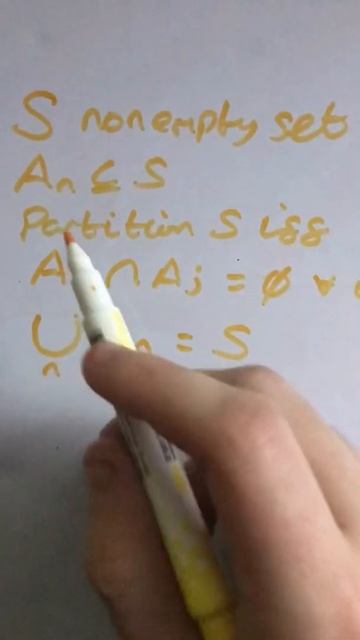 S nonempty set
An ⊆ S
Partition S iff
A ∩ Aj = ∅ ∀
⋃ n = S
n